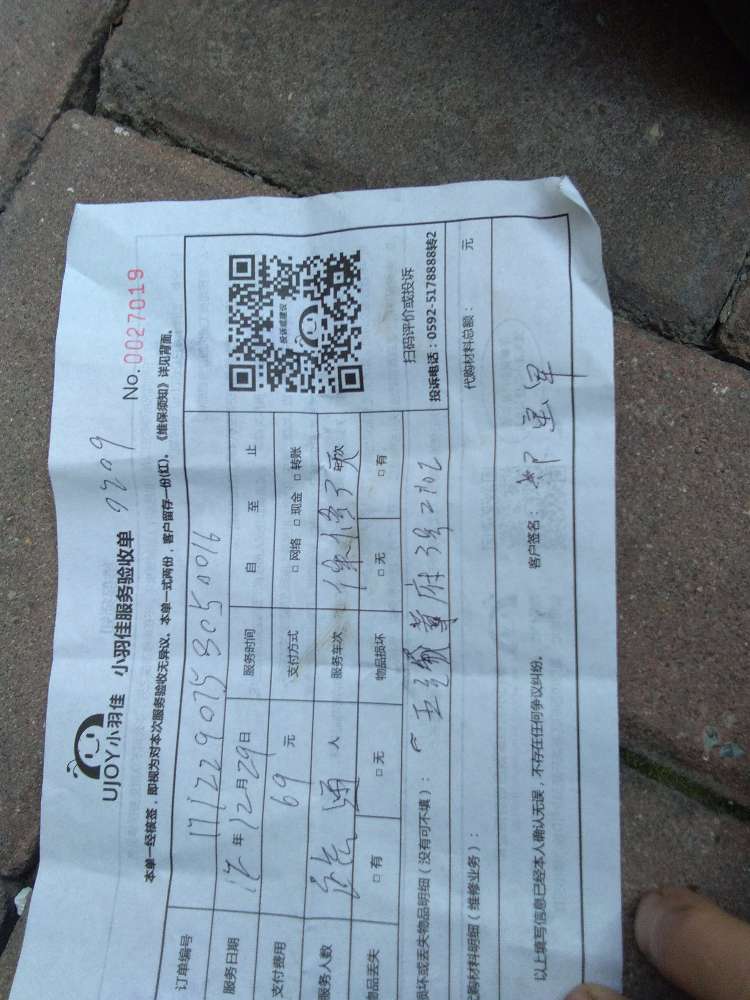 UJOY小羽佳 小羽佳服务验收单 No.0027019
本单一经核签，即视为对本次服务验收无异议。本单一式两份，客户留存一份(红)。《维保须知》详见背面。
订单编号 1712290758050016
服务日期 17年12月29日 服务时间 自 至 止
支付费用 69 元 支付方式 □ 网络 □ 现金 □ 转账
服务人数 人 服务车次
物品丢失 □ 有 □ 无 物品损坏 □ 无 □ 有
投诉或建议
扫码评价或投诉
投诉电话：0592-5178888转2
损坏或丢失物品明细（没有可不填）： 尊府3号2102
代购材料明细（维修业务）： 代购材料总额： 元
以上填写信息已经本人确认无误，不存在任何争议纠纷。 客户签名：